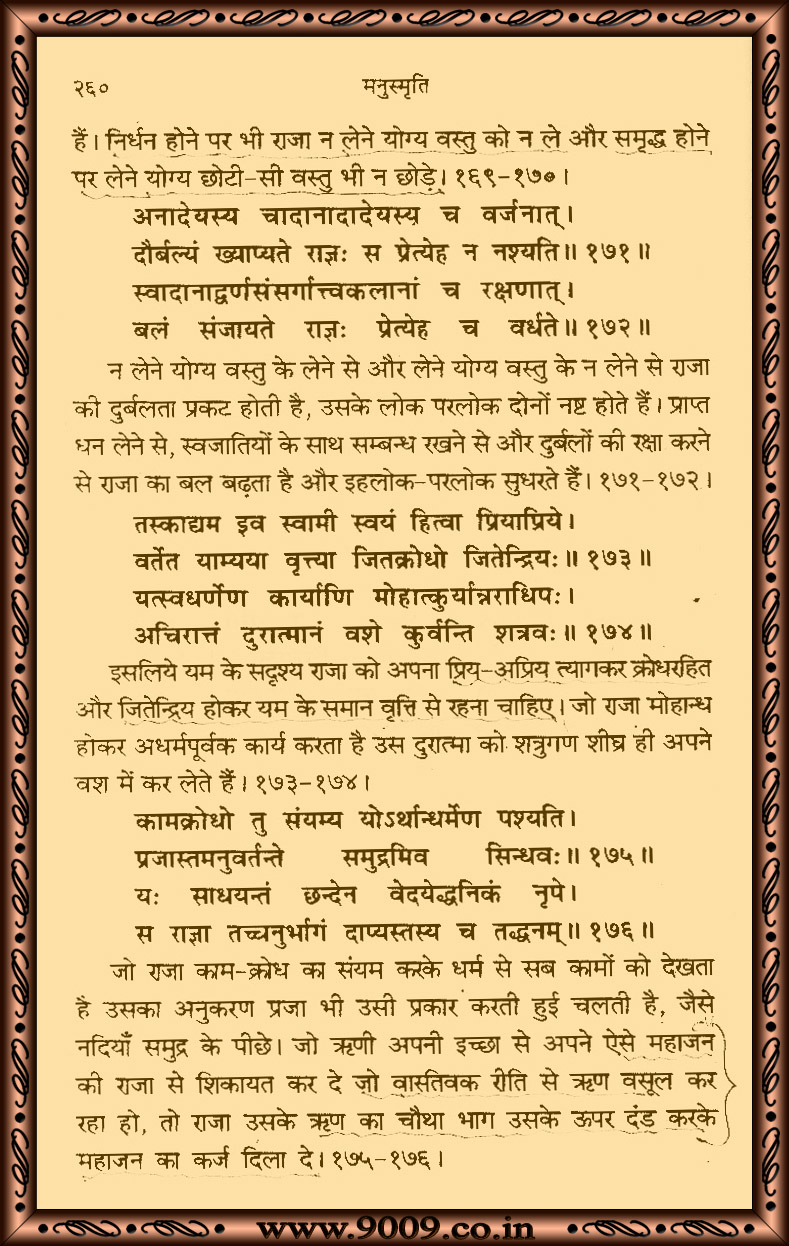 २६०
मनुस्मृति
हैं। निर्धन होने पर भी राजा न लेने योग्य वस्तु को न ले और समृद्ध होने
पर लेने योग्य छोटी-सी वस्तु भी न छोड़े। १६९-१७०।
अनादेयस्य चादानादादेयस्य च वर्जनात्।
दौर्बल्यं ख्याप्यते राज्ञः स प्रेत्येह न नश्यति॥ १७१॥
स्वादानाद्वर्णसंसर्गात्त्वकलानां च रक्षणात्।
बलं संजायते राज्ञः प्रेत्येह च वर्धते॥ १७२॥
न लेने योग्य वस्तु के लेने से और लेने योग्य वस्तु के न लेने से राजा
की दुर्बलता प्रकट होती है, उसके लोक परलोक दोनों नष्ट होते हैं। प्राप्त
धन लेने से, स्वजातियों के साथ सम्बन्ध रखने से और दुर्बलों की रक्षा करने
से राजा का बल बढ़ता है और इहलोक-परलोक सुधरते हैं। १७१-१७२।
तस्काद्यम इव स्वामी स्वयं हित्वा प्रियाप्रिये।
वर्तेत याम्यया वृत्त्या जितक्रोधो जितेन्द्रियः॥ १७३॥
यत्स्वधर्णेण कार्याणि मोहात्कुर्यान्नराधिपः।
अचिरात्तं दुरात्मानं वशे कुर्वन्ति शत्रवः॥ १७४॥
इसलिये यम के सदृश्य राजा को अपना प्रिय-अप्रिय त्यागकर क्रोधरहित
और जितेन्द्रिय होकर यम के समान वृत्ति से रहना चाहिए। जो राजा मोहान्ध
होकर अधर्मपूर्वक कार्य करता है उस दुरात्मा को शत्रुगण शीघ्र ही अपने
वश में कर लेते हैं। १७३-१७४।
कामक्रोधो तु संयम्य योऽर्थान्धर्मेण पश्यति।
प्रजास्तमनुवर्तन्ते समुद्रमिव सिन्धवः॥ १७५॥
यः साधयन्तं छन्देन वेदयेद्धनिकं नृपे।
स राज्ञा तच्चनुर्भागं दाप्यस्तस्य च तद्धनम्॥ १७६॥
जो राजा काम-क्रोध का संयम करके धर्म से सब कामों को देखता
है उसका अनुकरण प्रजा भी उसी प्रकार करती हुई चलती है, जैसे
नदियाँ समुद्र के पीछे। जो ऋणी अपनी इच्छा से अपने ऐसे महाजन
की राजा से शिकायत कर दे जो वास्तिवक रीति से ऋण वसूल कर
रहा हो, तो राजा उसके ऋण का चौथा भाग उसके ऊपर दंड करके
महाजन का कर्ज दिला दे। १७५-१७६।
www.9009.co.in